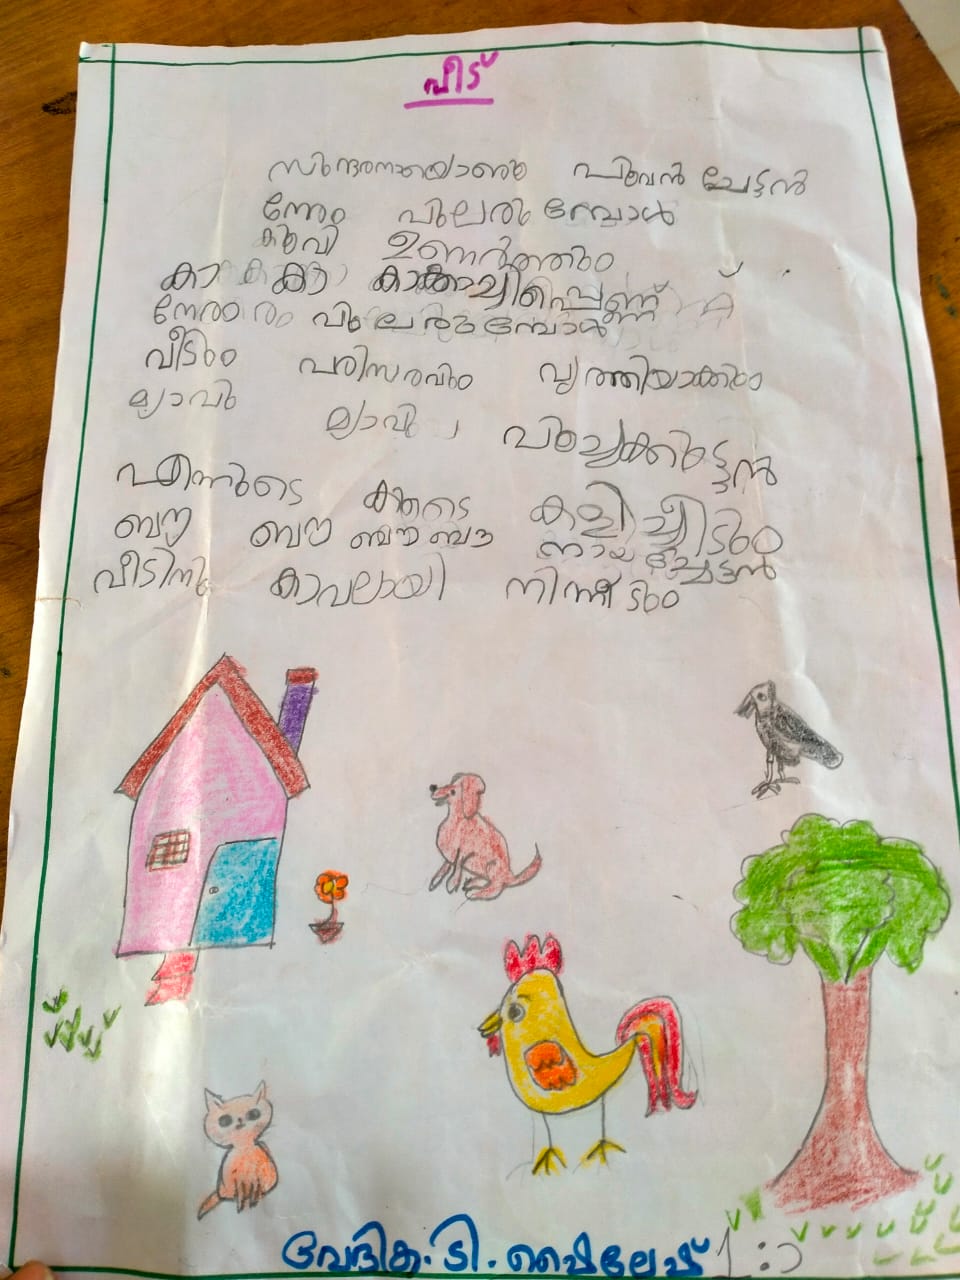 വീട്
സുന്ദരനായൊണ്ടു പൂവൻ ചേട്ടൻ
നേരം പുലരുമ്പോൾ
കൂവി ഉണർത്തും
കാ കാ കാക്കാച്ചിപ്പെണ്ണ്
നേരം പുലരുമ്പോൾ
വീടും പരിസരവും വൃത്തിയാക്കും
മ്യാവു
മ്യാവു പൂച്ചക്കുട്ടൻ
എന്നുടെ കൂടെ കളിച്ചീടും
ബൗ ബൗ ബൗ ബൗ നായ ച്ചേട്ടൻ
വീടിനു കാവലായി നിന്നീടും
വേദിക.ടി.ഷൈലേഷ് 1